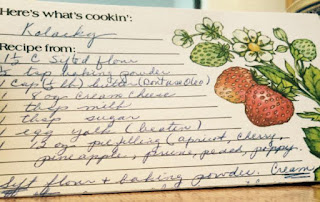 Here's what's cookin':
Kolacky
Recipe from:
1½ C Sifted flour
½ tsp baking powder
1 Cup (½ lb) butter (Dont use Oleo)
1 8 oz. cream cheese
1 tbsp milk
1 tbsp sugar
1 egg yolk (beaten)
1 12 oz. pie filling (apricot, cherry,
pineapple, prune, peach, poppy.
Sift flour + baking powder. Cream